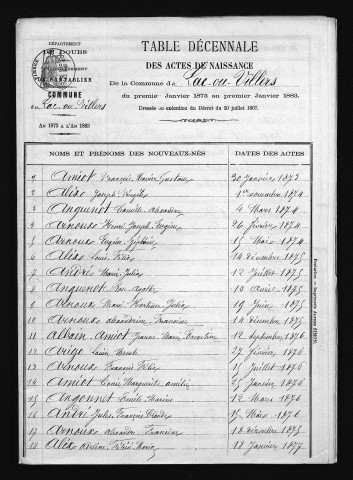 DÉPARTEMENT
DU DOUBS
ARRONDISSEMENT
DE PONTARLIER
COMMUNE
du Lac-ou-Villers
AN 1873 A L'AN 1883
TABLE DÉCENNALE
DES ACTES DE NAISSANCE
De la Commune de Lac-ou-Villers
du premier Janvier 1873 au premier Janvier 1883.
Dressée en exécution du Décret du 20 juillet 1807.
NOMS ET PRÉNOMS DES NOUVEAUX-NÉS
DATES DES ACTES
1 Amiot François Xavier Gustave 30 Janvier 1873
2 Alix Joseph Virgile 1er novembre 1874
3 Anguenot Camille 4 Mars 1874
4 Arnoux Henri Joseph Eugène 26 février 1874
5 Arnoux Eugène 15 Mars 1874
6 Alix Louis Félix 14 décembre 1875
7 Andrée Marie Julie 12 Juillet 1875
8 Anguenot 10 avril 1875
9 Arnoux Marie Julie 19 Juin 1875
10 Arnoux Alexandrine Francine 14 décembre 1875
11 Amiot Jeanne Marie Ernestine 12 Septembre 1876
12 Louis 27 février 1876
13 Arnoux François Félix 15 Juillet 1876
14 Amiot Louise Marguerite Amélie 25 Janvier 1876
15 Angonnet Emile Marius 12 Mars 1876
16 André Jules François 15 Mars 1876
17 Arnoux Alexandre 18 décembre 1875
18 Alix Marie 18 Janvier 1877